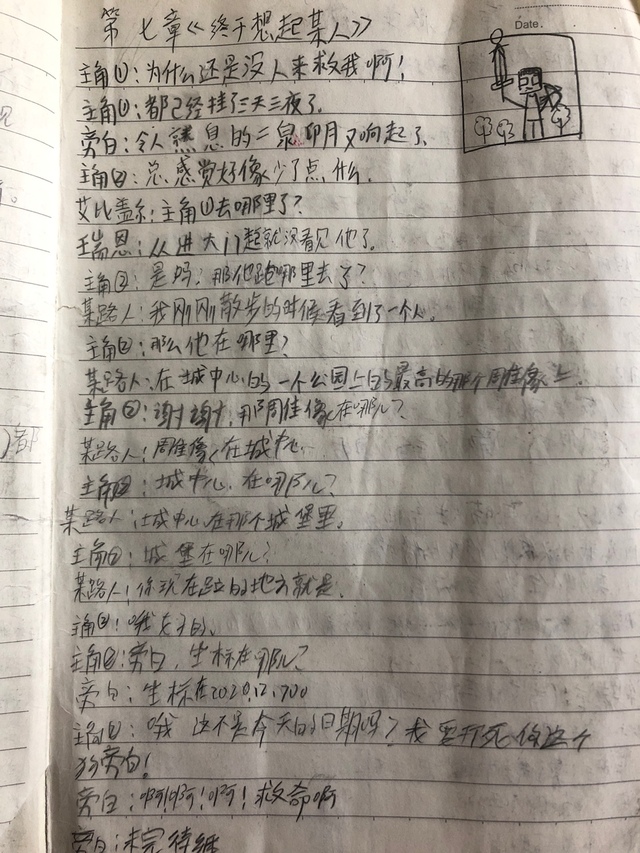 Date.
第七章《终于想起某人》
主角①:为什么还是没人来救我啊!
主角①:都已经挂了三天三夜了。
旁白:令人熟息的二泉印月又响起了。
主角②:总感觉好像少了点什么.
艾比盖尔:主角①去哪里了?
瑞恩:从进大门起就没看见他了。
主角②:是吗?那他跑哪里去了?
某路人:我刚刚散步的时候看到了一个人。
主角②:那么他在哪里?
某路人:在城中心的一个公园上的最高的那个周佳像上.
主角②:谢谢,那周佳像在哪儿?
某路人:周佳像在城中心.
主角②:城中心在哪儿?
某路人:城中心在那个城堡里。
主角②:城堡在哪儿?
某路人:你现在的地方就是.
主角②:哦好的.
主角②:旁白,坐标在哪儿?
旁白:坐标在2020,12,
主角②:哦 这不是今天的日期吗?我要打死你这个
狗旁白!
旁白:啊!啊!啊!救命啊
旁白:未完待续
都